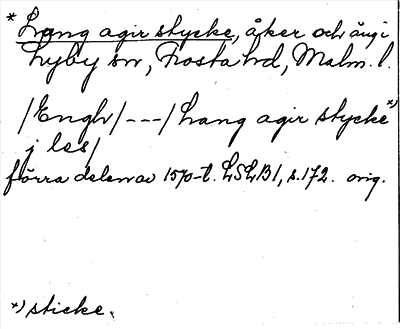 * Lang agir stycke, åker och äng i
Lyby sn, Frosta hd, Malm. l.
/Engh/ --- / Lang agir stycke *)
j les/
förra delen av 1570-t. LSLB1, s. 172. orig.
*) sticke.